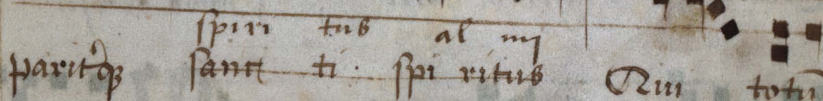 spiri tus al mi
paritq3 sanct ti. spi ritus Qui totū